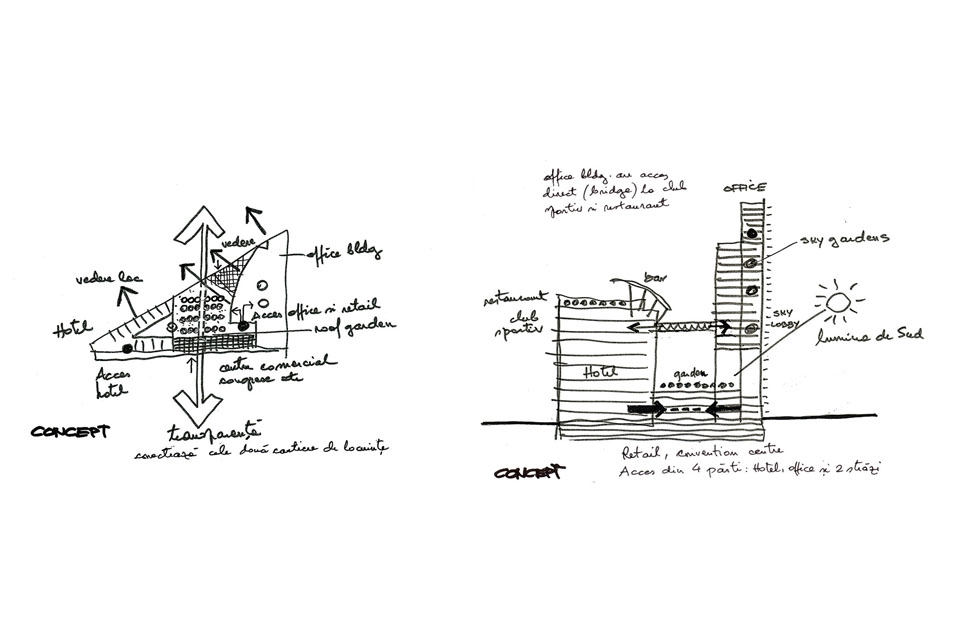 vedere
office bldg
vedere lac
Hotel
Acces office si retail
roof garden
Acces
hotel
centru comercial
CONCEPT
transparență
conectează cele două cartiere de locuințe
office bldg. are acces
direct (bridge) la club
sportiv si restaurant
OFFICE
sky gardens
bar
restaurant
club
sportiv
SKY
LOBBY
lumina de Sud
Hotel
garden
CONCEPT
Retail, convention centre
Acces din 4 părți: Hotel, office și 2 străzi